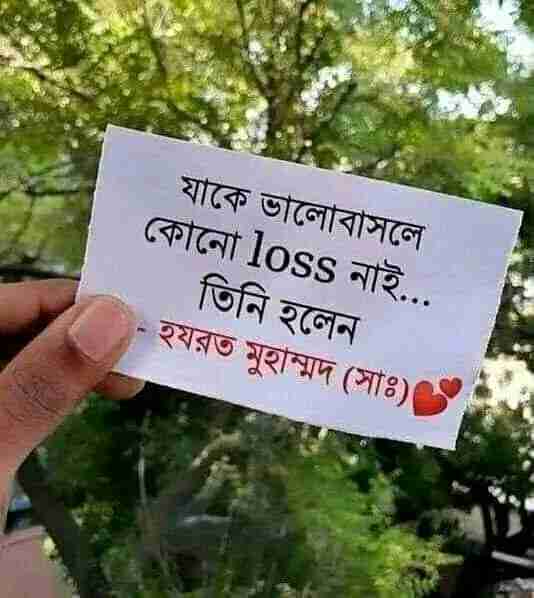 যাকে ভালোবাসলে
কোনো loss নাই...
তিনি হলেন
- হযরত মুহাম্মদ (সাঃ)💕